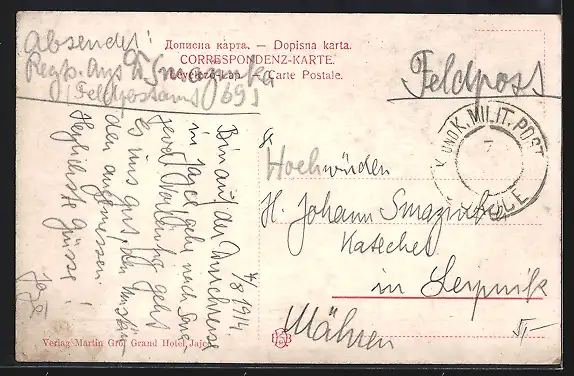 Absender:
Regts. Arzt Dr Smazinka
(Feldpostamt 69)
Дописна карта. — Dopisna karta.
CORRESPONDENZ-KARTE.
Levelező-lap. Carte Postale.
Feldpost
K. UND K. MILIT. POST
JAJCE
4/8 1914
Bin auf der Durchreise
in Jajce, gehe nach
jevo. Vorläufig geht
Es uns gut, den Umstän-
den angemessen.
Herzlichste Grüsse!
Hochwürden
H. Johann Smazinka
Katechet
in Leipnik
Mähren
Verlag Martin Gro, Grand Hotel, Jajce